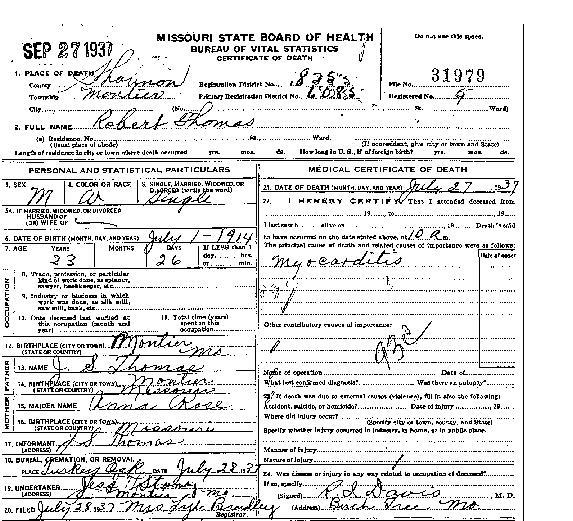 MISSOURI STATE BOARD OF HEALTH
BUREAU OF VITAL STATISTICS
CERTIFICATE OF DEATH
Do not use this space.
SEP 27 1937
1. PLACE OF DEATH
County Shannon Registration District No. 825 File No. 31979
Township Montier Primary Registration District No. 6085 Registered No. 9
City (No. St. Ward)
2. FULL NAME Robert Thomas
(a) Residence, No. St. Ward.
(Usual place of abode) (If nonresident, give city or town and State)
Length of residence in city or town where death occurred yrs. mos. ds. How long in U. S., if of foreign birth? yrs. mos. ds.
PERSONAL AND STATISTICAL PARTICULARS
3. SEX M
4. COLOR OR RACE W
5. SINGLE, MARRIED, WIDOWED, OR DIVORCED (write the word) Single
5A. IF MARRIED, WIDOWED, OR DIVORCED
HUSBAND OF
(OR) WIFE OF
6. DATE OF BIRTH (MONTH, DAY, AND YEAR) July 1-1914
7. AGE YEARS MONTHS DAYS If LESS than 1
day, hrs.
or min.
23 26
OCCUPATION
8. Trade, profession, or particular
kind of work done, as spinner,
sawyer, bookkeeper, etc.
9. Industry or business in which
work was done, as silk mill,
saw mill, bank, etc.
10. Date deceased last worked at
this occupation (month and
year)
11. Total time (years)
spent in this
occupation
12. BIRTHPLACE (CITY OR TOWN) Montier
(STATE OR COUNTRY) Mo
FATHER
13. NAME J. S. Thomas
14. BIRTHPLACE (CITY OR TOWN) Montier
(STATE OR COUNTRY) Missouri
MOTHER
15. MAIDEN NAME Anna Rose
16. BIRTHPLACE (CITY OR TOWN)
(STATE OR COUNTRY) Missouri
17. INFORMANT J S Thomas
(ADDRESS)
18. BURIAL, CREMATION, OR REMOVAL
PLACE Turkey Oak DATE July 28 1937
19. UNDERTAKER
(ADDRESS) Montier Mo
20. FILED July 28 1937 Mrs Bradley
Registrar.
MEDICAL CERTIFICATE OF DEATH
21. DATE OF DEATH (MONTH, DAY, AND YEAR) July 27 1937
22. I HEREBY CERTIFY, That I attended deceased from
, 19 , to , 19
I last saw h alive on , 19 Death is said
to have occurred on the date stated above, at 10 a m.
The principal cause of death and related causes of importance were as follows:
Date of onset
Myocarditis
Other contributory causes of importance:
Name of operation Date of
What test confirmed diagnosis? Was there an autopsy?
23. If death was due to external causes (violence), fill in also the following:
Accident, suicide, or homicide? Date of injury , 19
Where did injury occur?
(Specify city or town, county, and State)
Specify whether injury occurred in industry, in home, or in public place.
Manner of injury
Nature of injury
24. Was disease or injury in any way related to occupation of deceased?
If so, specify
(Signed) R. S. Davis , M. D.
(Address) Birch Tree Mo.